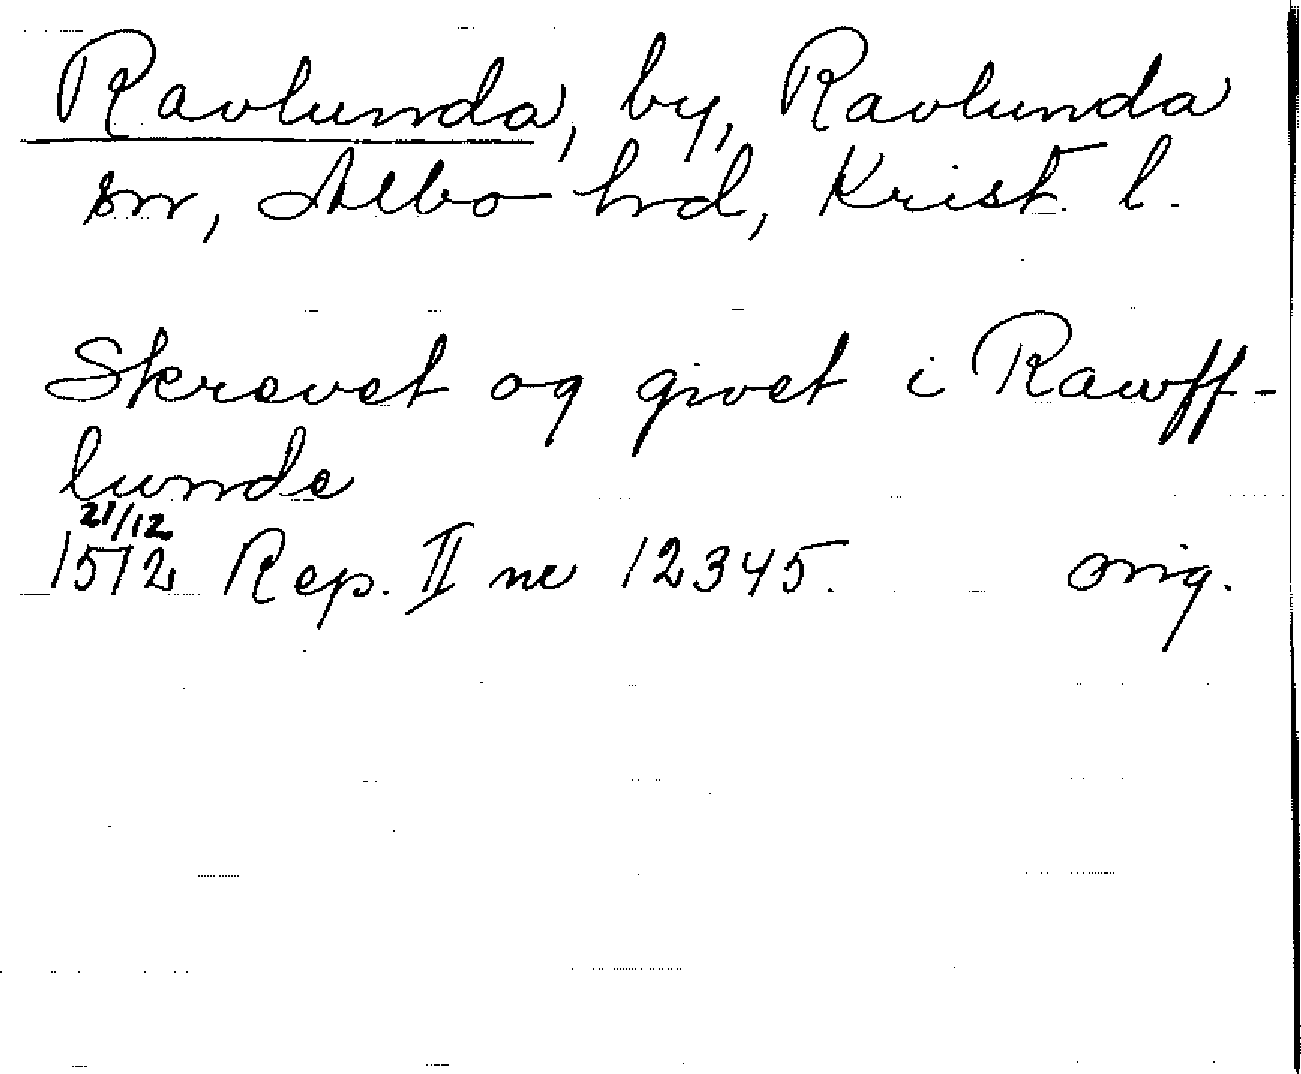 Ravlunda, by, Ravlunda
sn, Albo hrd, Krist. l.
Skrevet og givet i Rawff-
lunde
21/12
1512 Rep. II nr 12345. orig.